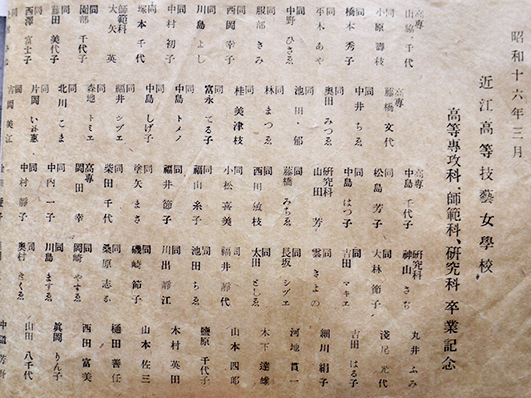 昭和十六年三月
近江高等技藝女學校
高等專攻科、師範科、研究科 卒業記念
高專 山脇千代
同 小原壽枝
同 橋本秀子
同 平木あや
同 中野ひさゑ
同 服部きみ
同 西岡幸子
同 川島よし
同 中村初子
同 塚本千代
師範科 大矢英
同 園部千代子
同 藤田美代子
同 西澤富士子
高專 藤橋文代
同 中井ちゑ
同 奥田みつゑ
同 池田郁
同 林まつゑ
同 桂美津枝
同 富永てる子
同 中島トメノ
同 中島しげ子
同 福井シヅエ
同 森地トミエ
同 北川こま
同 片岡
吉岡美江
高專 中島千代子
同 松島芳子
同 中島はつ子
研究科 山田芳
同 藤橋みちゑ
同 西川敏枝
同 小松喜美
同 福山糸子
同 福井節子
同 塗矢まさ
同 柴田千代
高專 岡田幸
同 中西一子
同 中村靜子
研究科 神山さち
同 大林節子
同 吉田マキエ
同 雲きよの
同 長坂シヅエ
同 太田としゑ
同 福井靜代
同 池田らゑ
同 川出靜江
同 磯崎節子
同 桑原志か
同 岡崎やすゑ
同 川島ますゑ
同 奥村きくゑ
丸井ふみ
淺尾光代
吉田はる子
細川絹子
河地貫一
木下達雄
山本四郎
鹽原千代子
木村英田
山本佐三
樋田善任
西田富美
眞岡りん子
山田八千代